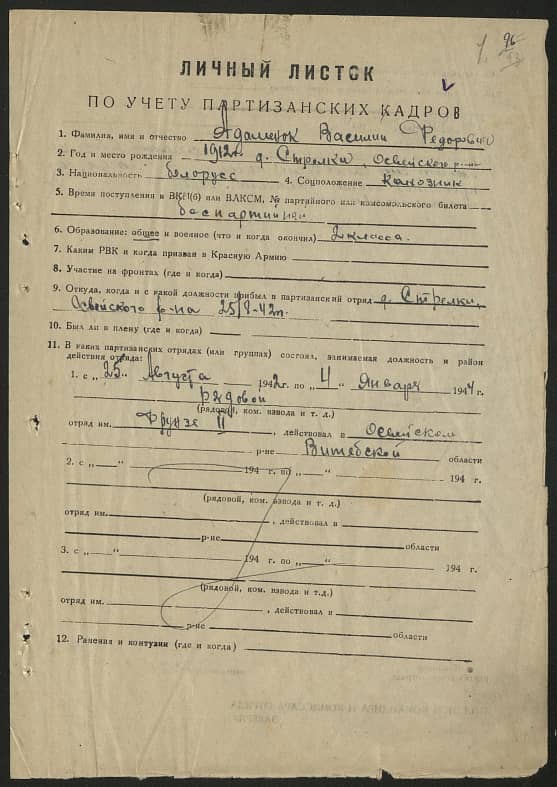 96
ЛИЧНЫЙ ЛИСТОК
ПО УЧЕТУ ПАРТИЗАНСКИХ КАДРОВ
1. Фамилия, имя и отчество Адаменок Василий Федорович
2. Год и место рождения 1912г. д. Стрелки, Освейского р-на
3. Национальность белорус 4. Соцположение Колхозник
5. Время поступления в ВКП(б) или ВЛКСМ, № партийного или комсомольского билета
беспартийный
6. Образование: общее и военное (что и когда окончил) 2 класса.
7. Каким РВК и когда призван в Красную Армию
8. Участие на фронтах (где и когда)
9. Откуда, когда и с какой должности прибыл в партизанский отряд д. Стрелки,
Освейского р-на 25/8-42г.
10. Был ли в плену (где и когда)
11. В каких партизанских отрядах (или группах) состоял, занимаемая должность и район
действия отряда:
1. с „25“ Августа 1942г. по „4“ Января 1944 г.
рядовой
(рядовой, ком. взвода и т. д.)
отряд им. Фрунзе II, действовал в Освейском
р-не Витебской области
2. с „ “ 194 г. по „ “ 194 г.
(рядовой, ком. взвода и т. д.)
отряд им. , действовал в
р-не области
3. с „ “ 194 г. по „ “ 194 г.
(рядовой, ком. взвода и т.д.)
отряд им. , действовал в
р-не области
12. Ранения и контузии (где и когда)